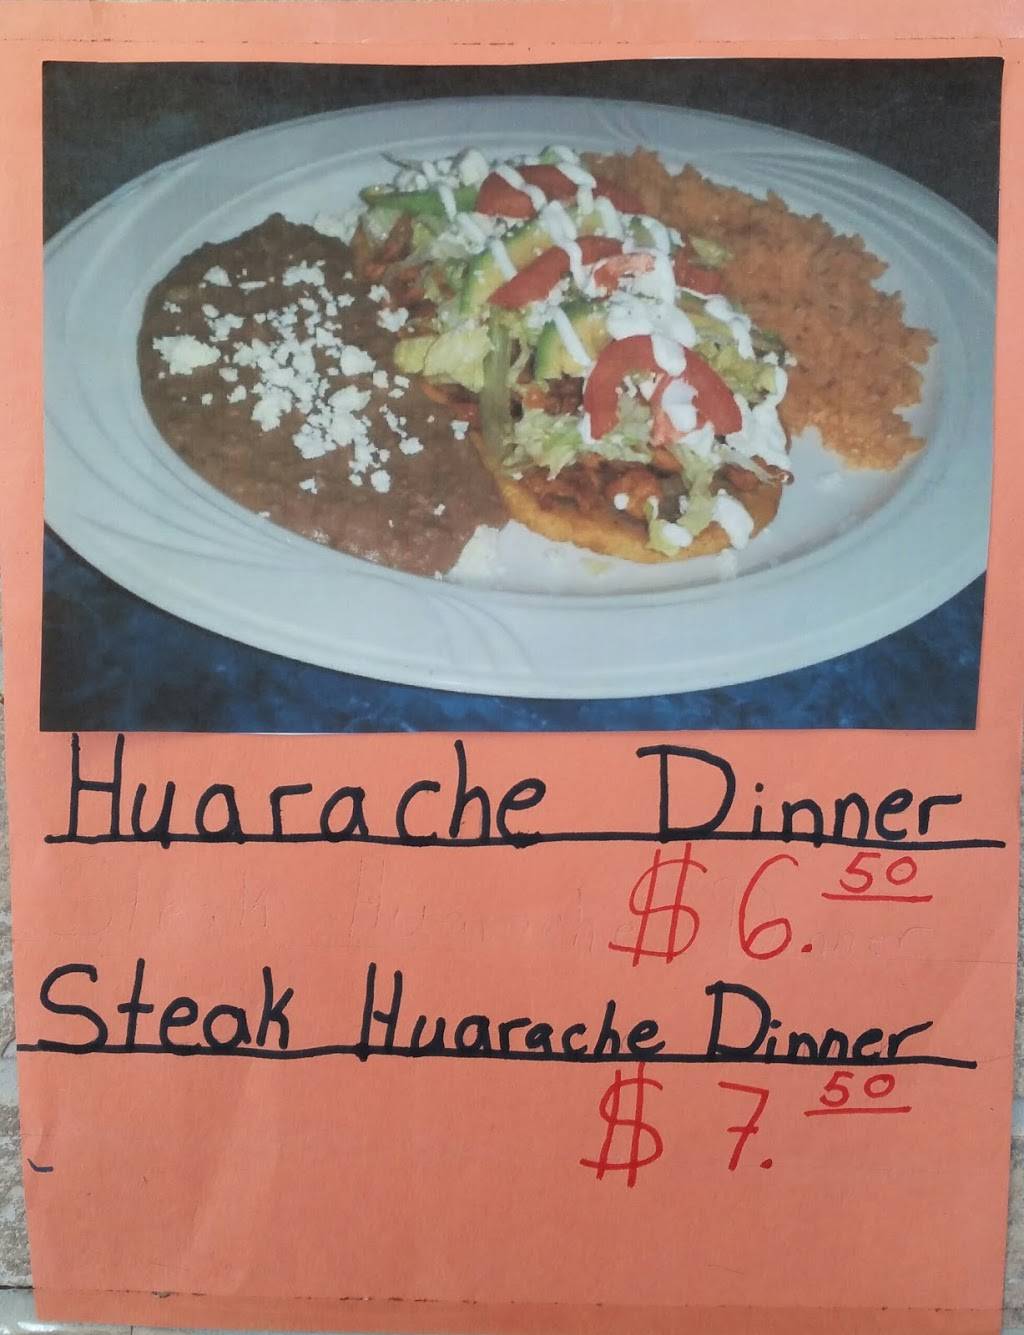 Huarache Dinner
$6.50
Steak Huarache Dinner
$7.50